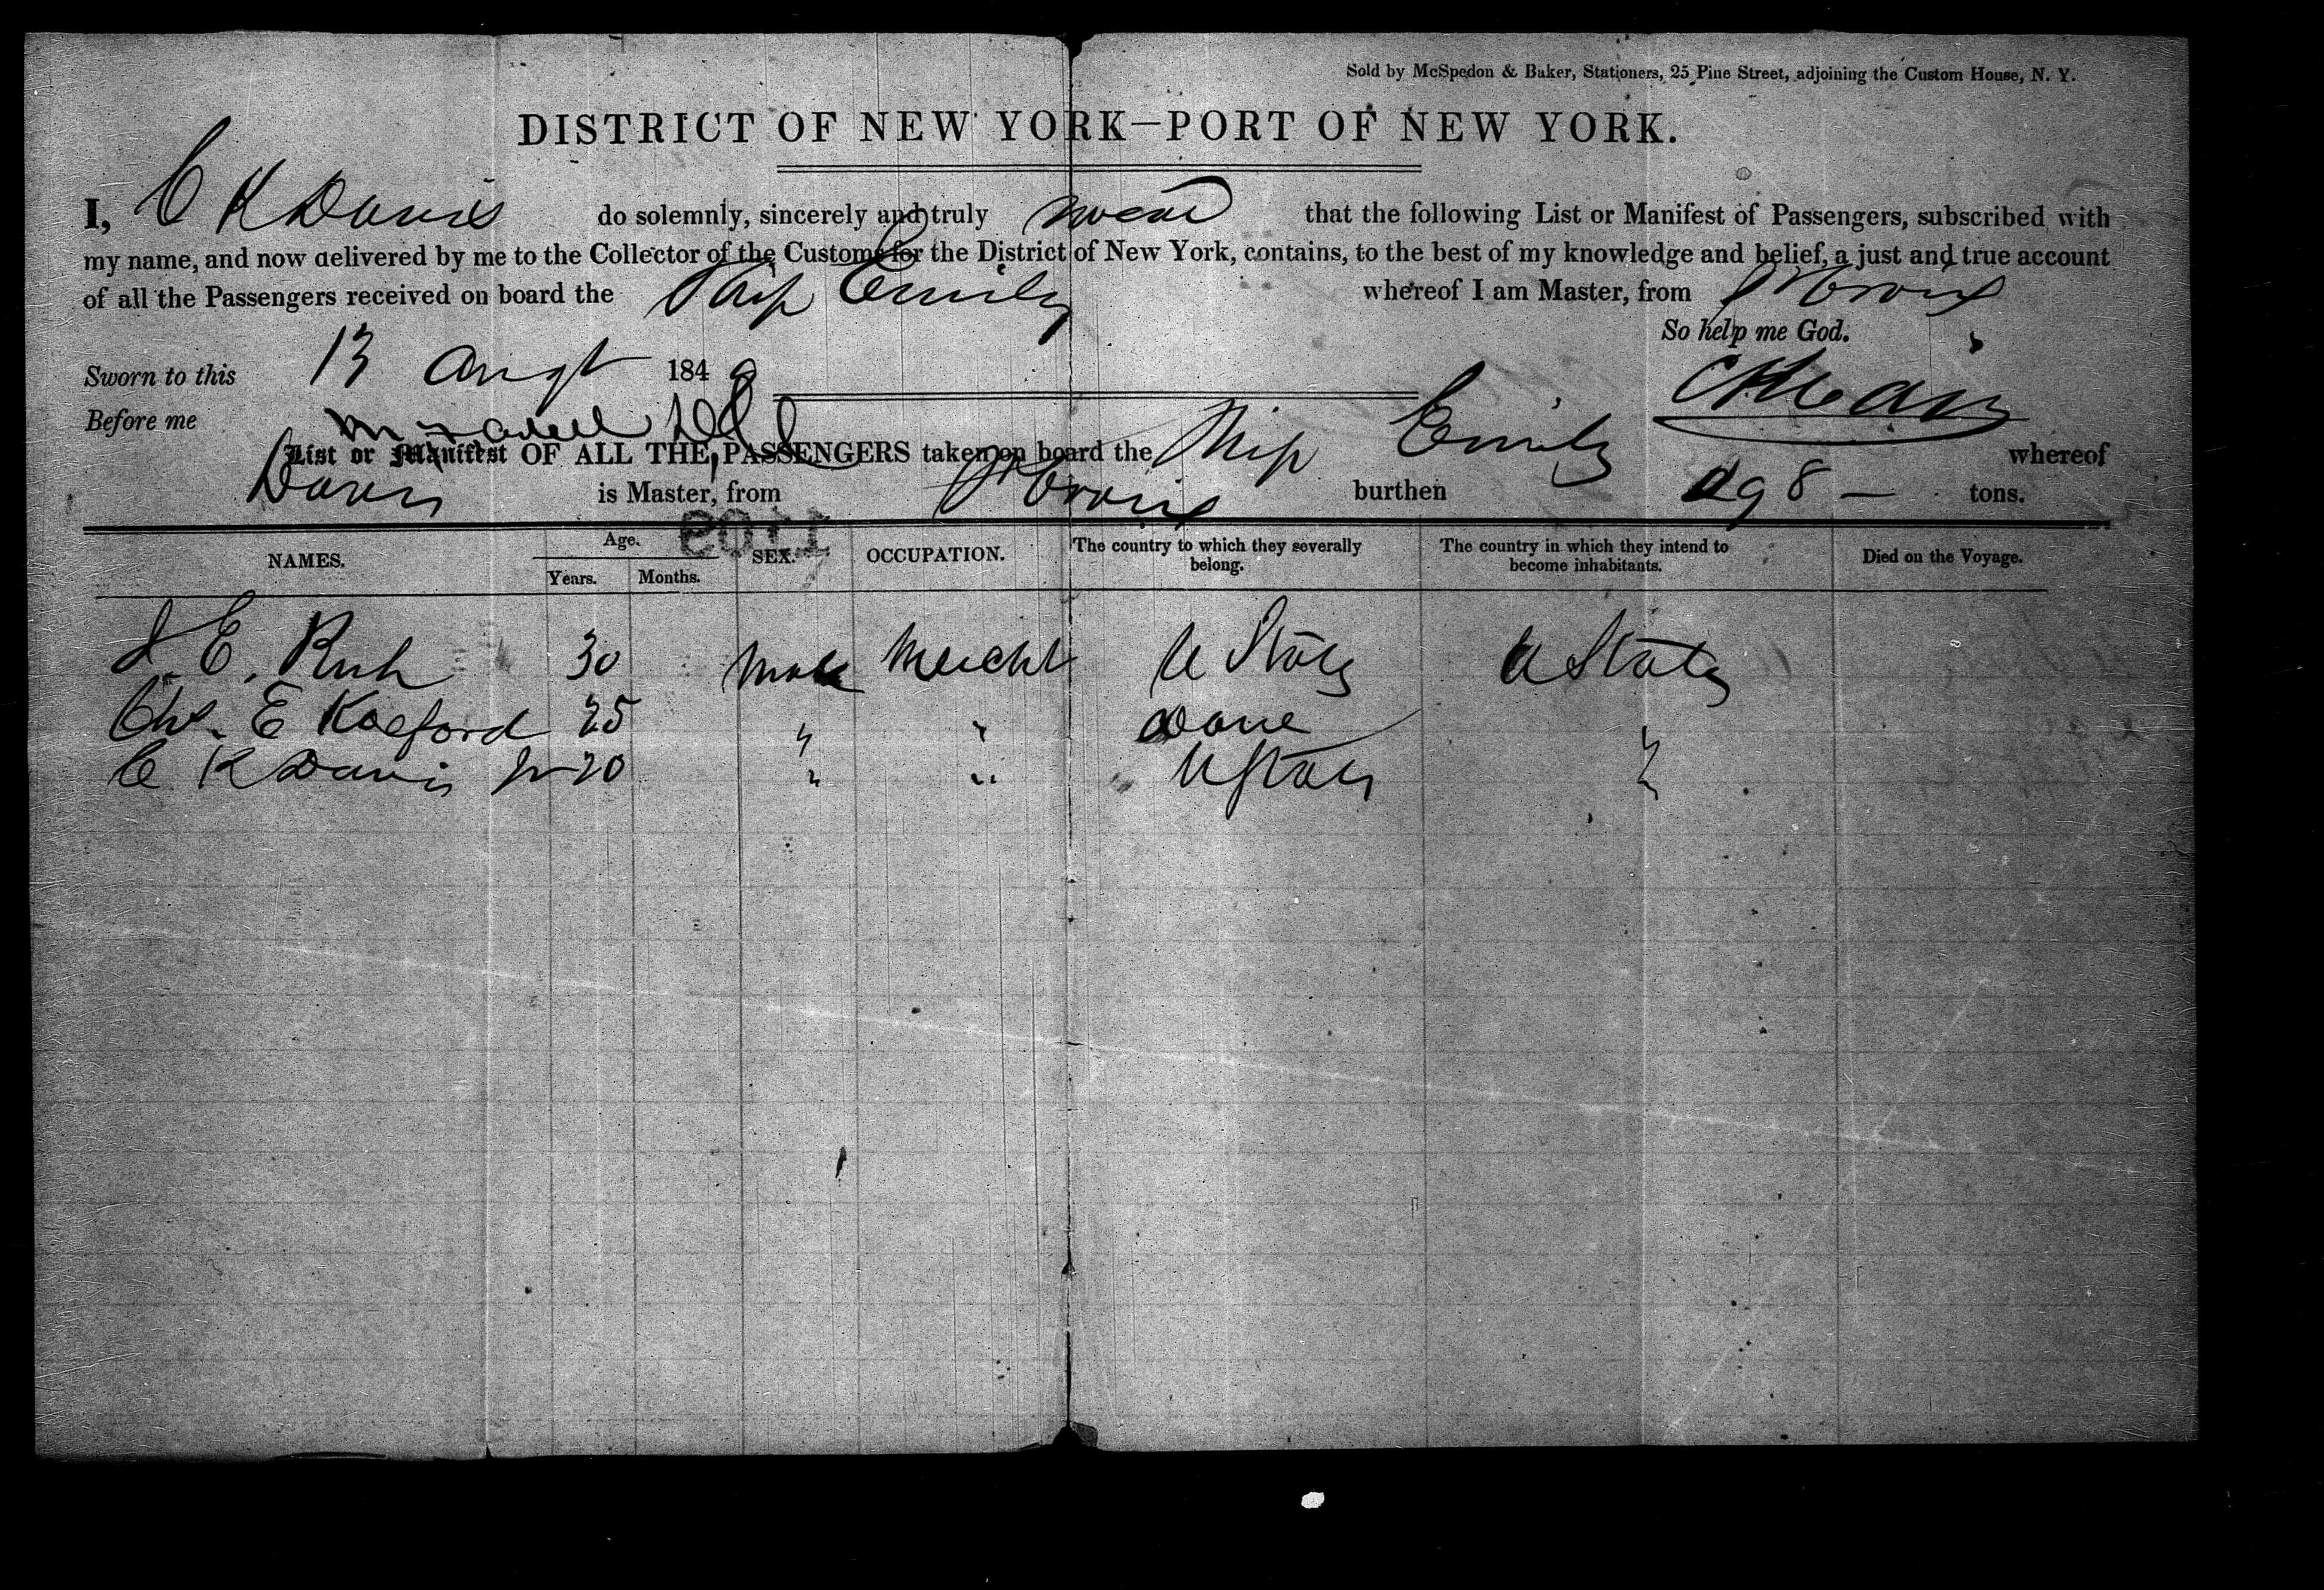 Sold by McSpedon & Baker, Stationers, 25 Pine Street, adjoining the Custom House, N. Y.
DISTRICT OF NEW YORK—PORT OF NEW YORK.
I, C K Davis do solemnly, sincerely and truly swear that the following List or Manifest of Passengers, subscribed with
my name, and now delivered by me to the Collector of the Customs for the District of New York, contains, to the best of my knowledge and belief, a just and true account
of all the Passengers received on board the Ship Emily whereof I am Master, from St Croix
So help me God.
Sworn to this 13 Augt 1849
Before me
C K Davis
List or Manifest OF ALL THE PASSENGERS taken on board the Ship Emily whereof
Davis is Master, from St Croix burthen 298 — tons.
1109
NAMES. Age. Years. Months. SEX. OCCUPATION. The country to which they severally belong. The country in which they intend to become inhabitants. Died on the Voyage.
E. Rush 30 Male Mercht U States U States
Chs. E 25 " " Dane "
C K Davis Jr 20 " " U States "